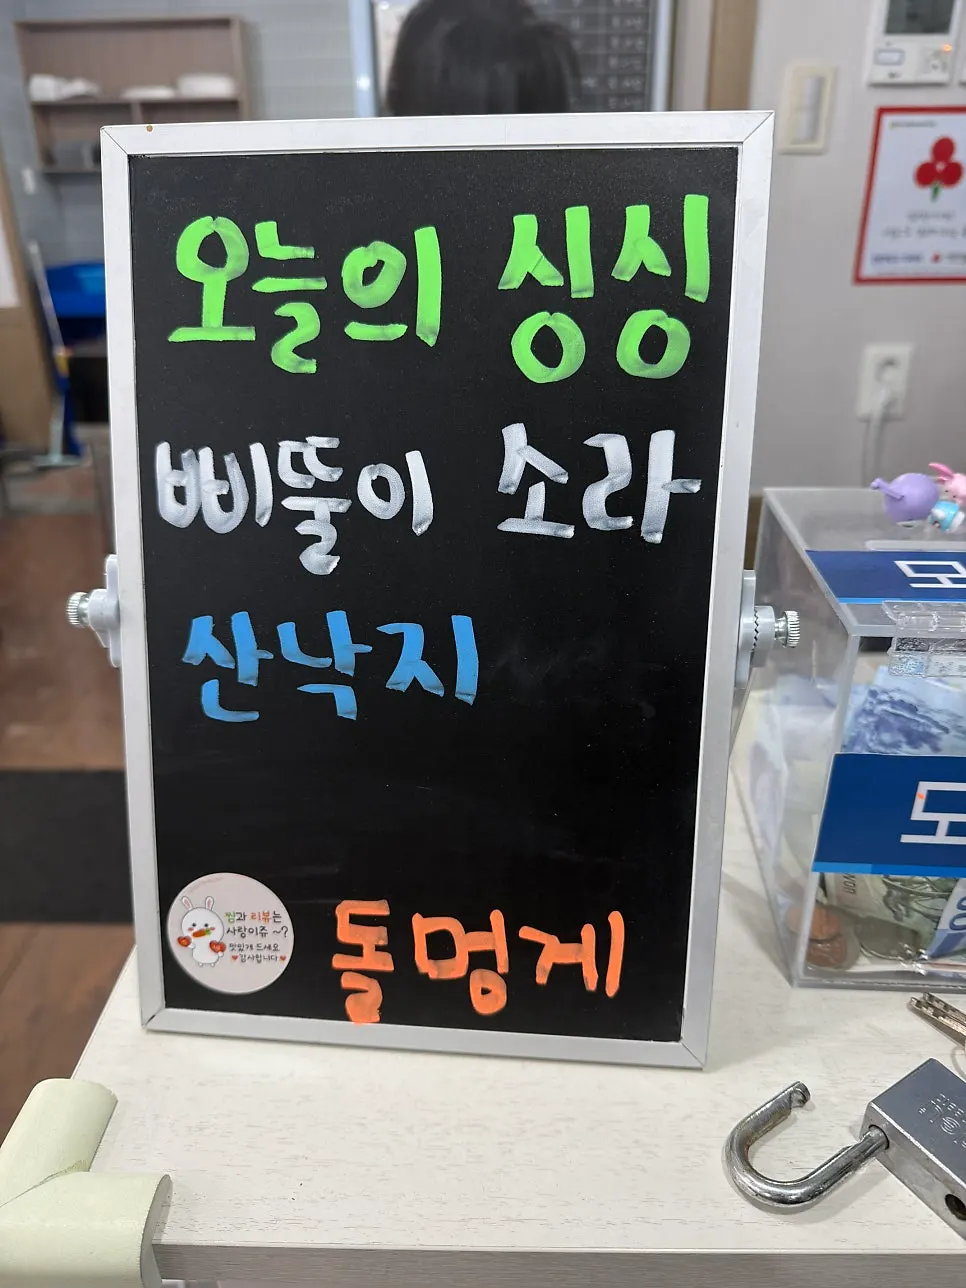 오늘의 싱싱
삐뚤이 소라
산낙지
찜과 리뷰는
사랑이쥬 ~?
맛있게 드세요
♥감사합니다♥
돌멍게
모
모